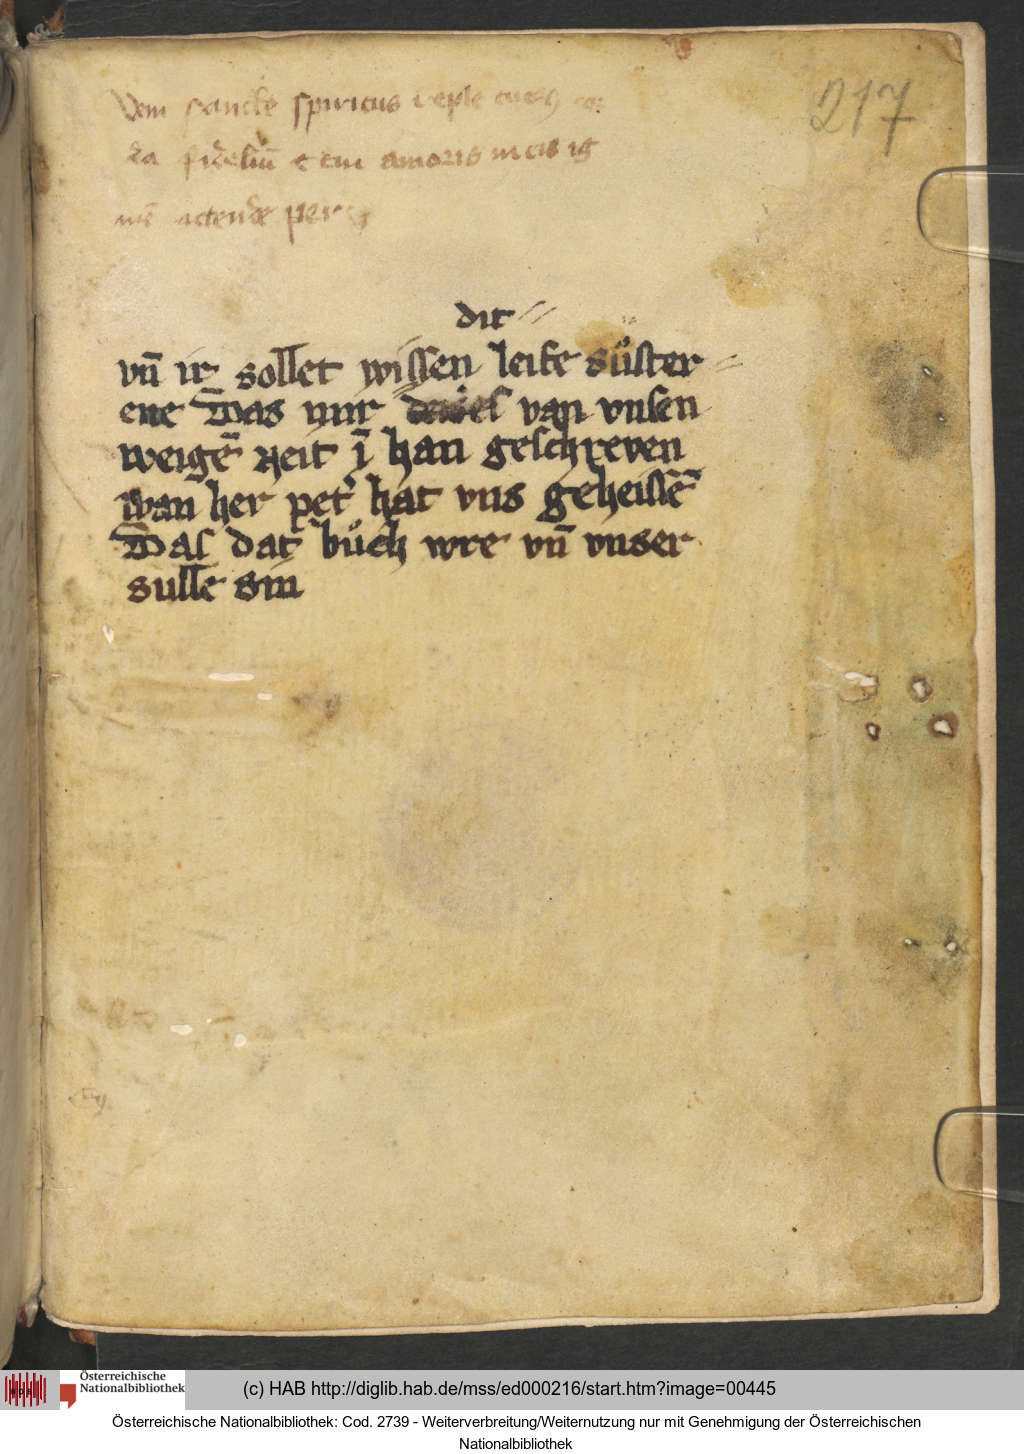 217
Veni sancte spiritus reple tuoꝝ co⁊
da fideliū ⁊ tui amoris in eis ig
nē accende per
dit
vn̄ ir sollet wissen leife sůster
ene Das mir van vnsen
weigē zeit ī han geschreven
wan her pet' hat vns geheissē
Das dat bůch wre vn̄ vnser
sulle sin
Österreichische
Nationalbibliothek
(c) HAB http://diglib.hab.de/mss/ed000216/start.htm?image=00445
Österreichische Nationalbibliothek: Cod. 2739 - Weiterverbreitung/Weiternutzung nur mit Genehmigung der Österreichischen
Nationalbibliothek